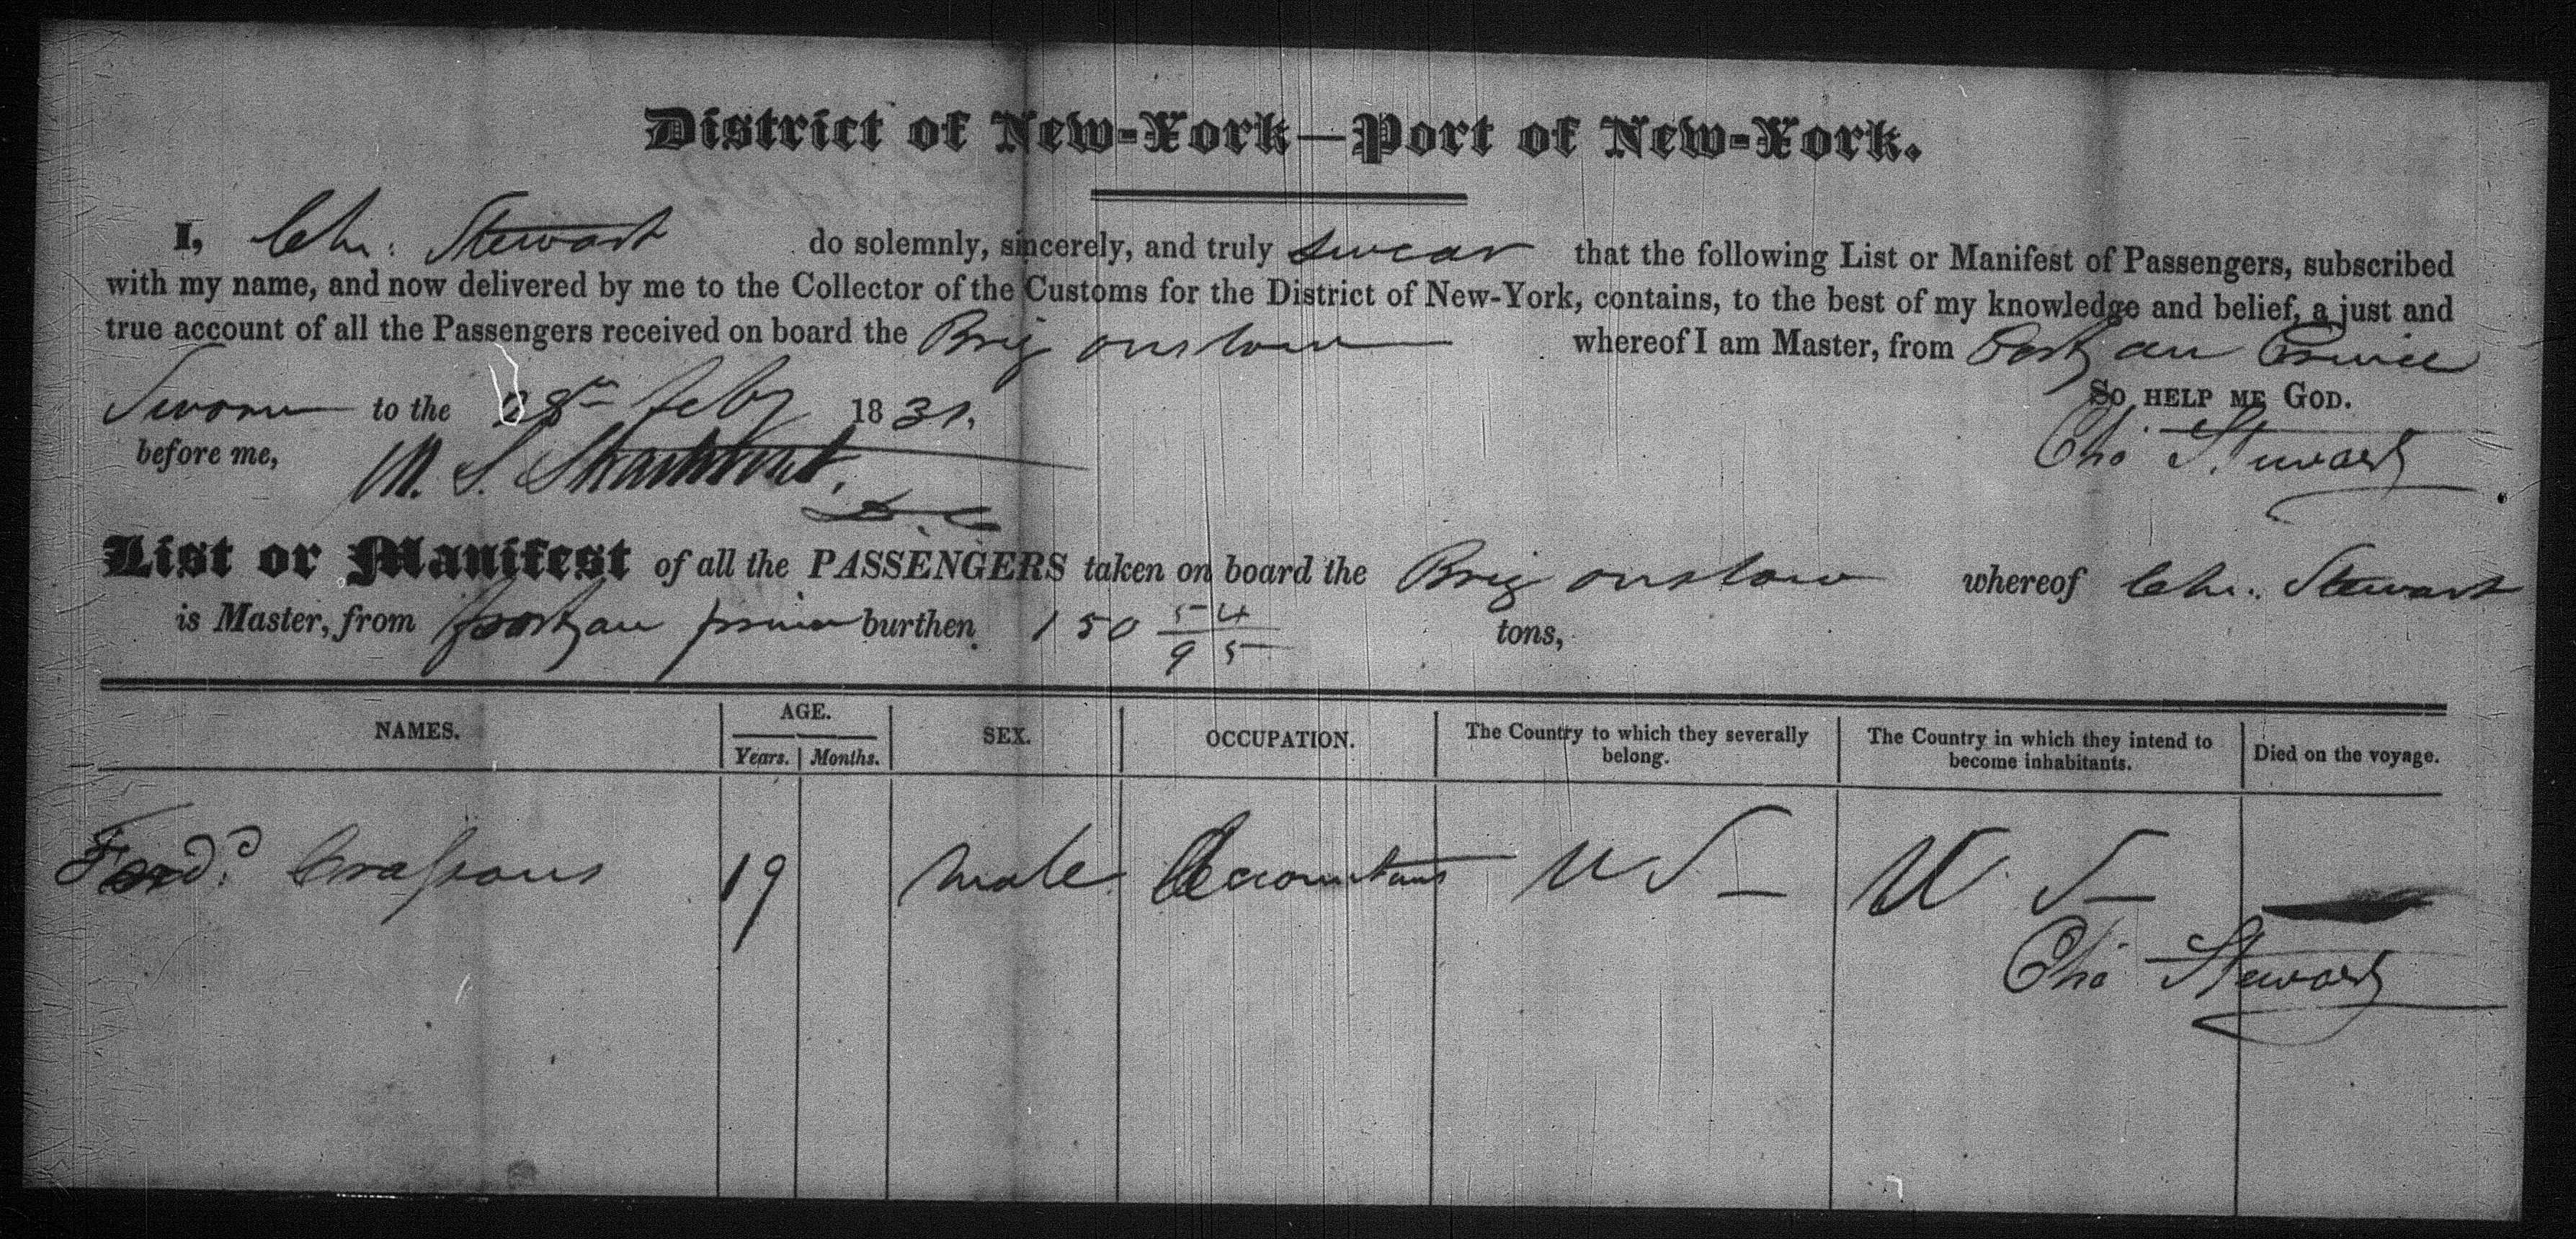 District of New-York—Port of New-York.
I, Chr: Stewart do solemnly, sincerely, and truly swear that the following List or Manifest of Passengers, subscribed
with my name, and now delivered by me to the Collector of the Customs for the District of New-York, contains, to the best of my knowledge and belief, a just and
true account of all the Passengers received on board the Brig onslow whereof I am Master, from Port au Prince
So help me God.
Sworn to the 28th Feby 1831.
before me, M. S.
D. C
Chr Stewart
List or Manifest of all the PASSENGERS taken on board the Brig onslow whereof Chr. Stewart
is Master, from port au prince burthen 150 54/95 tons,
NAMES. AGE. Years. Months. SEX. OCCUPATION. The Country to which they severally belong. The Country in which they intend to become inhabitants. Died on the voyage.
Ferdd. 19 male Accountant U S — U. S —
Chr Stewart